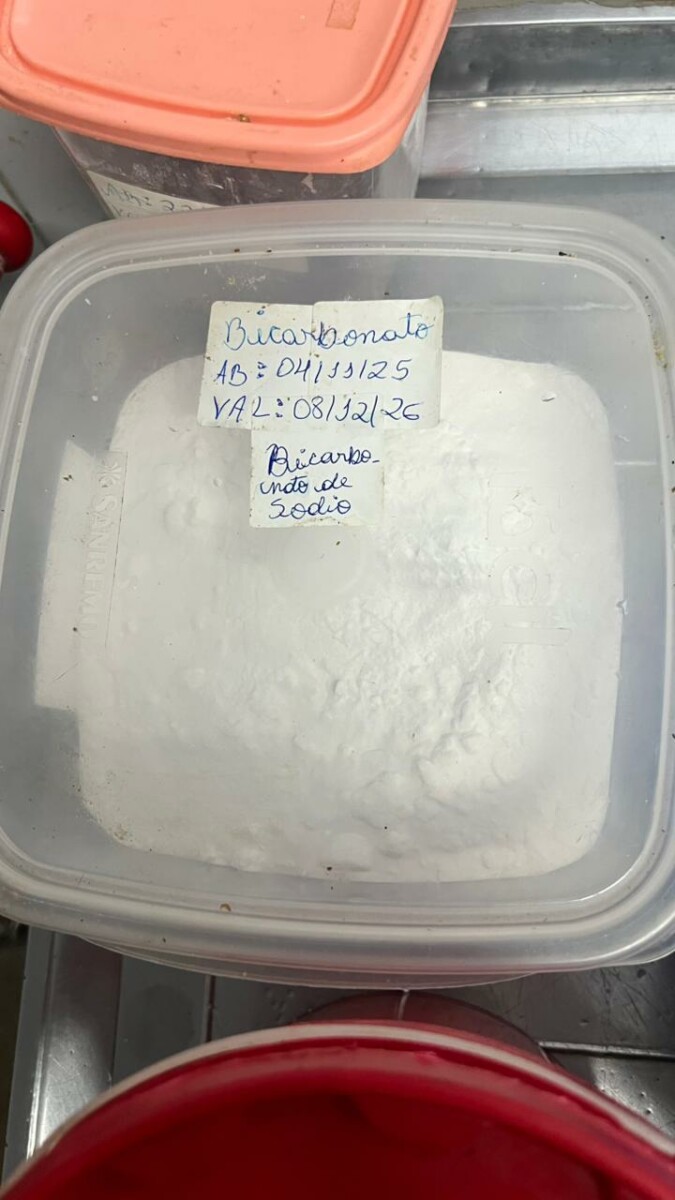 Bicarbonato
AB: 04/11/25
VAL: 08/12/26
Bicarbo-
nato de
Sodio
SANREMO